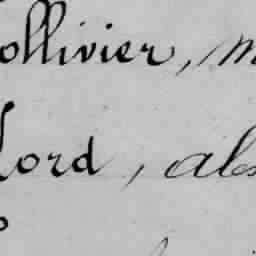 ollivier, m
Lord, abs